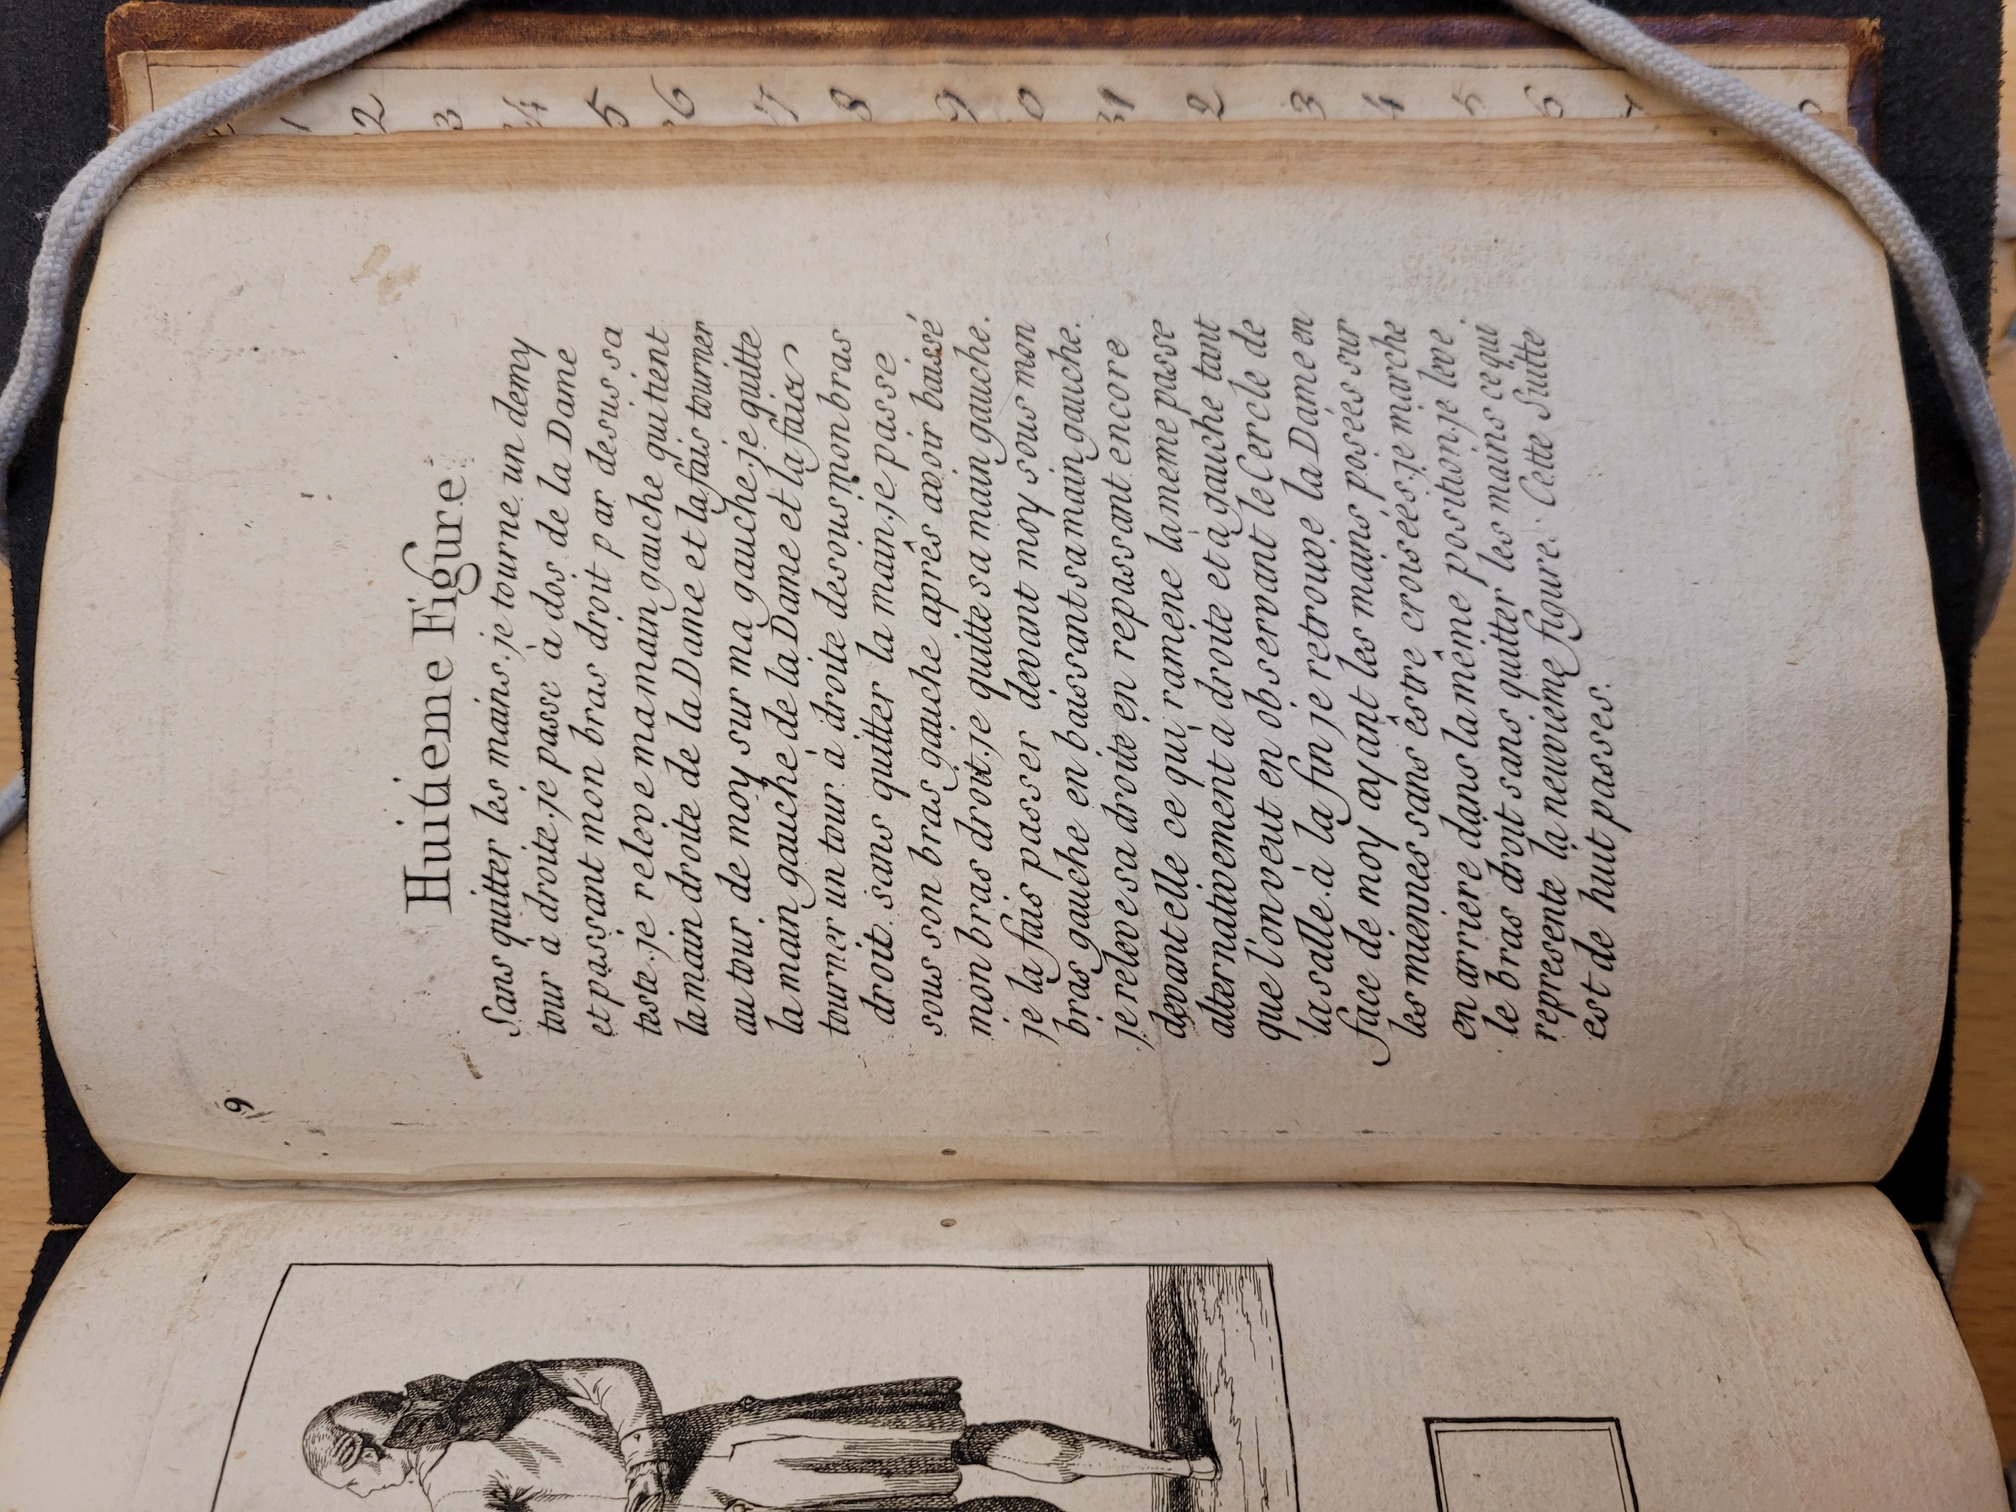 9
Huitieme Figure.
Sans quitter les mains. je tourne un demy
tour a droite. je passe à dos de la Dame
et passant mon bras droit par desus sa
teste. je releve ma main gauche qui tient
la main droite de la Dame et la fais tourner
au tour de moy sur ma gauche. je quitte
la main gauche de la Dame et la faix
tourner un tour a droite desous mon bras
droit. sans quitter la main. je passe
sous son bras gauche aprês avoir baissé
mon bras droit. je quitte sa main gauche.
je la fais passer devant moy sous mon
bras gauche en baissant sa main gauche.
je releve sa droite en repassant encore
devant elle ce qui ramene la meme passe
alternativement a droite et a gauche tant
que l'on veut en observant le Cercle de
la salle. à la fin je retrouve la Dame en
face de moy ayant les mains posées sur
les miennes sans êstre croisées. je marche
en arriere dans la même position. je leve
le bras droit sans quitter les mains ce qui
represente la neuvieme figure. Cette Suitte
est de huit passes.
1
2
3
4
5
6
7
8
9
0
31
2
3
4
5
6
7